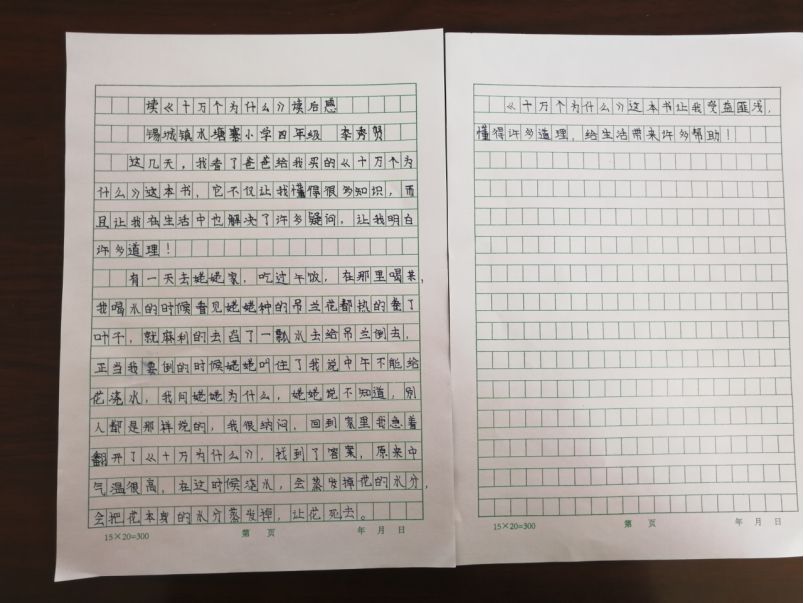 读《十万个为什么》读后感
锡城镇水塘寨小学四年级 李秀贺
这几天，我看了爸爸给我买的《十万个为
什么》这本书，它不仅让我懂得很多知识，而
且让我在生活中也解决了许多疑问，让我明白
许多道理！
有一天去姥姥家，吃过午饭，在那里喝茶，
我喝水的时候看见姥姥种的吊兰花都热的卷了
叶子，就麻利的去舀了一瓢水去给吊兰倒去，
正当我要倒的时候姥姥叫住了我说中午不能给
花浇水，我问姥姥为什么，姥姥说不知道，别
人都是那样说的，我很纳闷，回到家里我急着
翻开了《十万为什么》，找到了答案，原来中
气温很高，在这时候浇水，会蒸发掉花的水分，
会把花本身的水分蒸发掉，让花死去。
15×20=300 第 页 年 月 日
《十万个为什么》这本书让我受益匪浅，
懂得许多道理，给生活带来许多帮助！
15×20=300 第 页 年 月 日